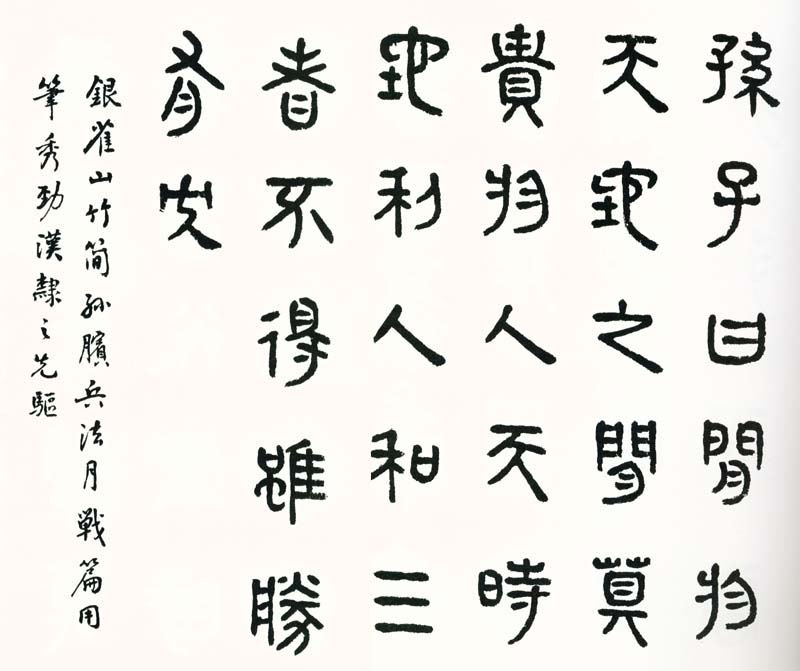 孫子曰閒於
天地之閒莫
貴於人天時
地利人和三
者不得雖勝
有央
銀雀山竹簡孫臏兵法月戰篇用
筆秀勁漢隸之先驅